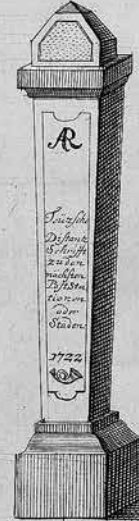 AR
Teutsche
Distantz
Schrifft
zu den
nächsten
Post Sta
tionen
oder
Städen
1722